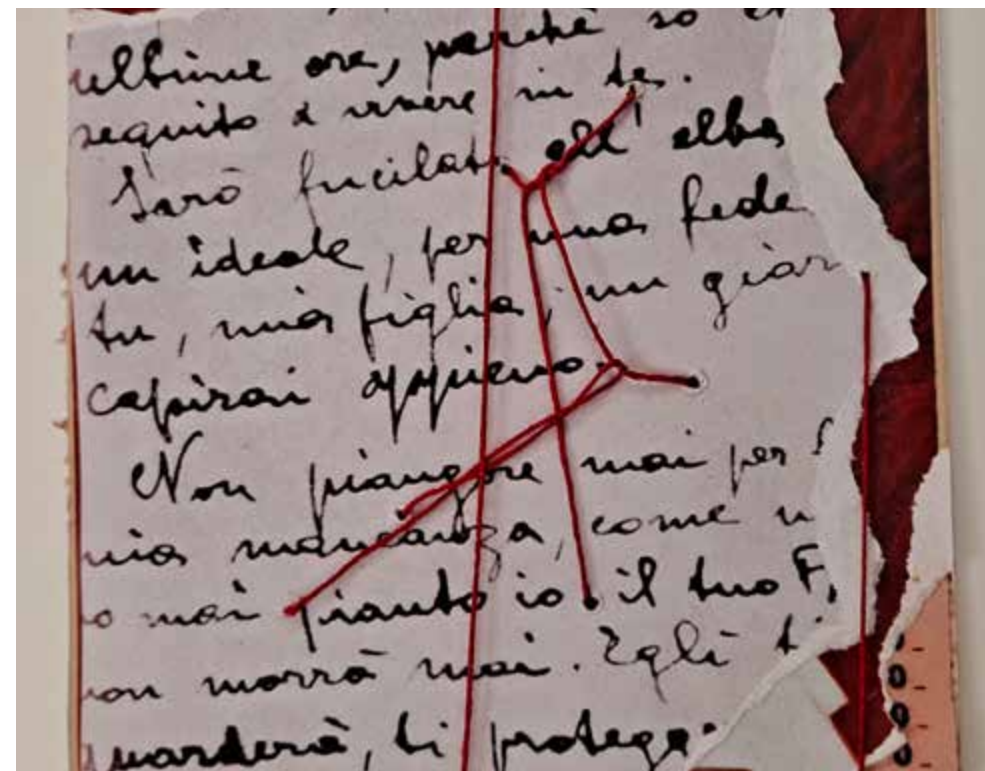 ultime ore, perchè so
seguito a vivere in te.
Sarò fucilato all'alba
un ideale, per una fede
tu, mia figlia, un gior
capirai appieno.
Non piangere mai per
mia mancanza, come n
o mai pianto io il tuo
non morrà mai. Egli t
guarderà, ti protegge